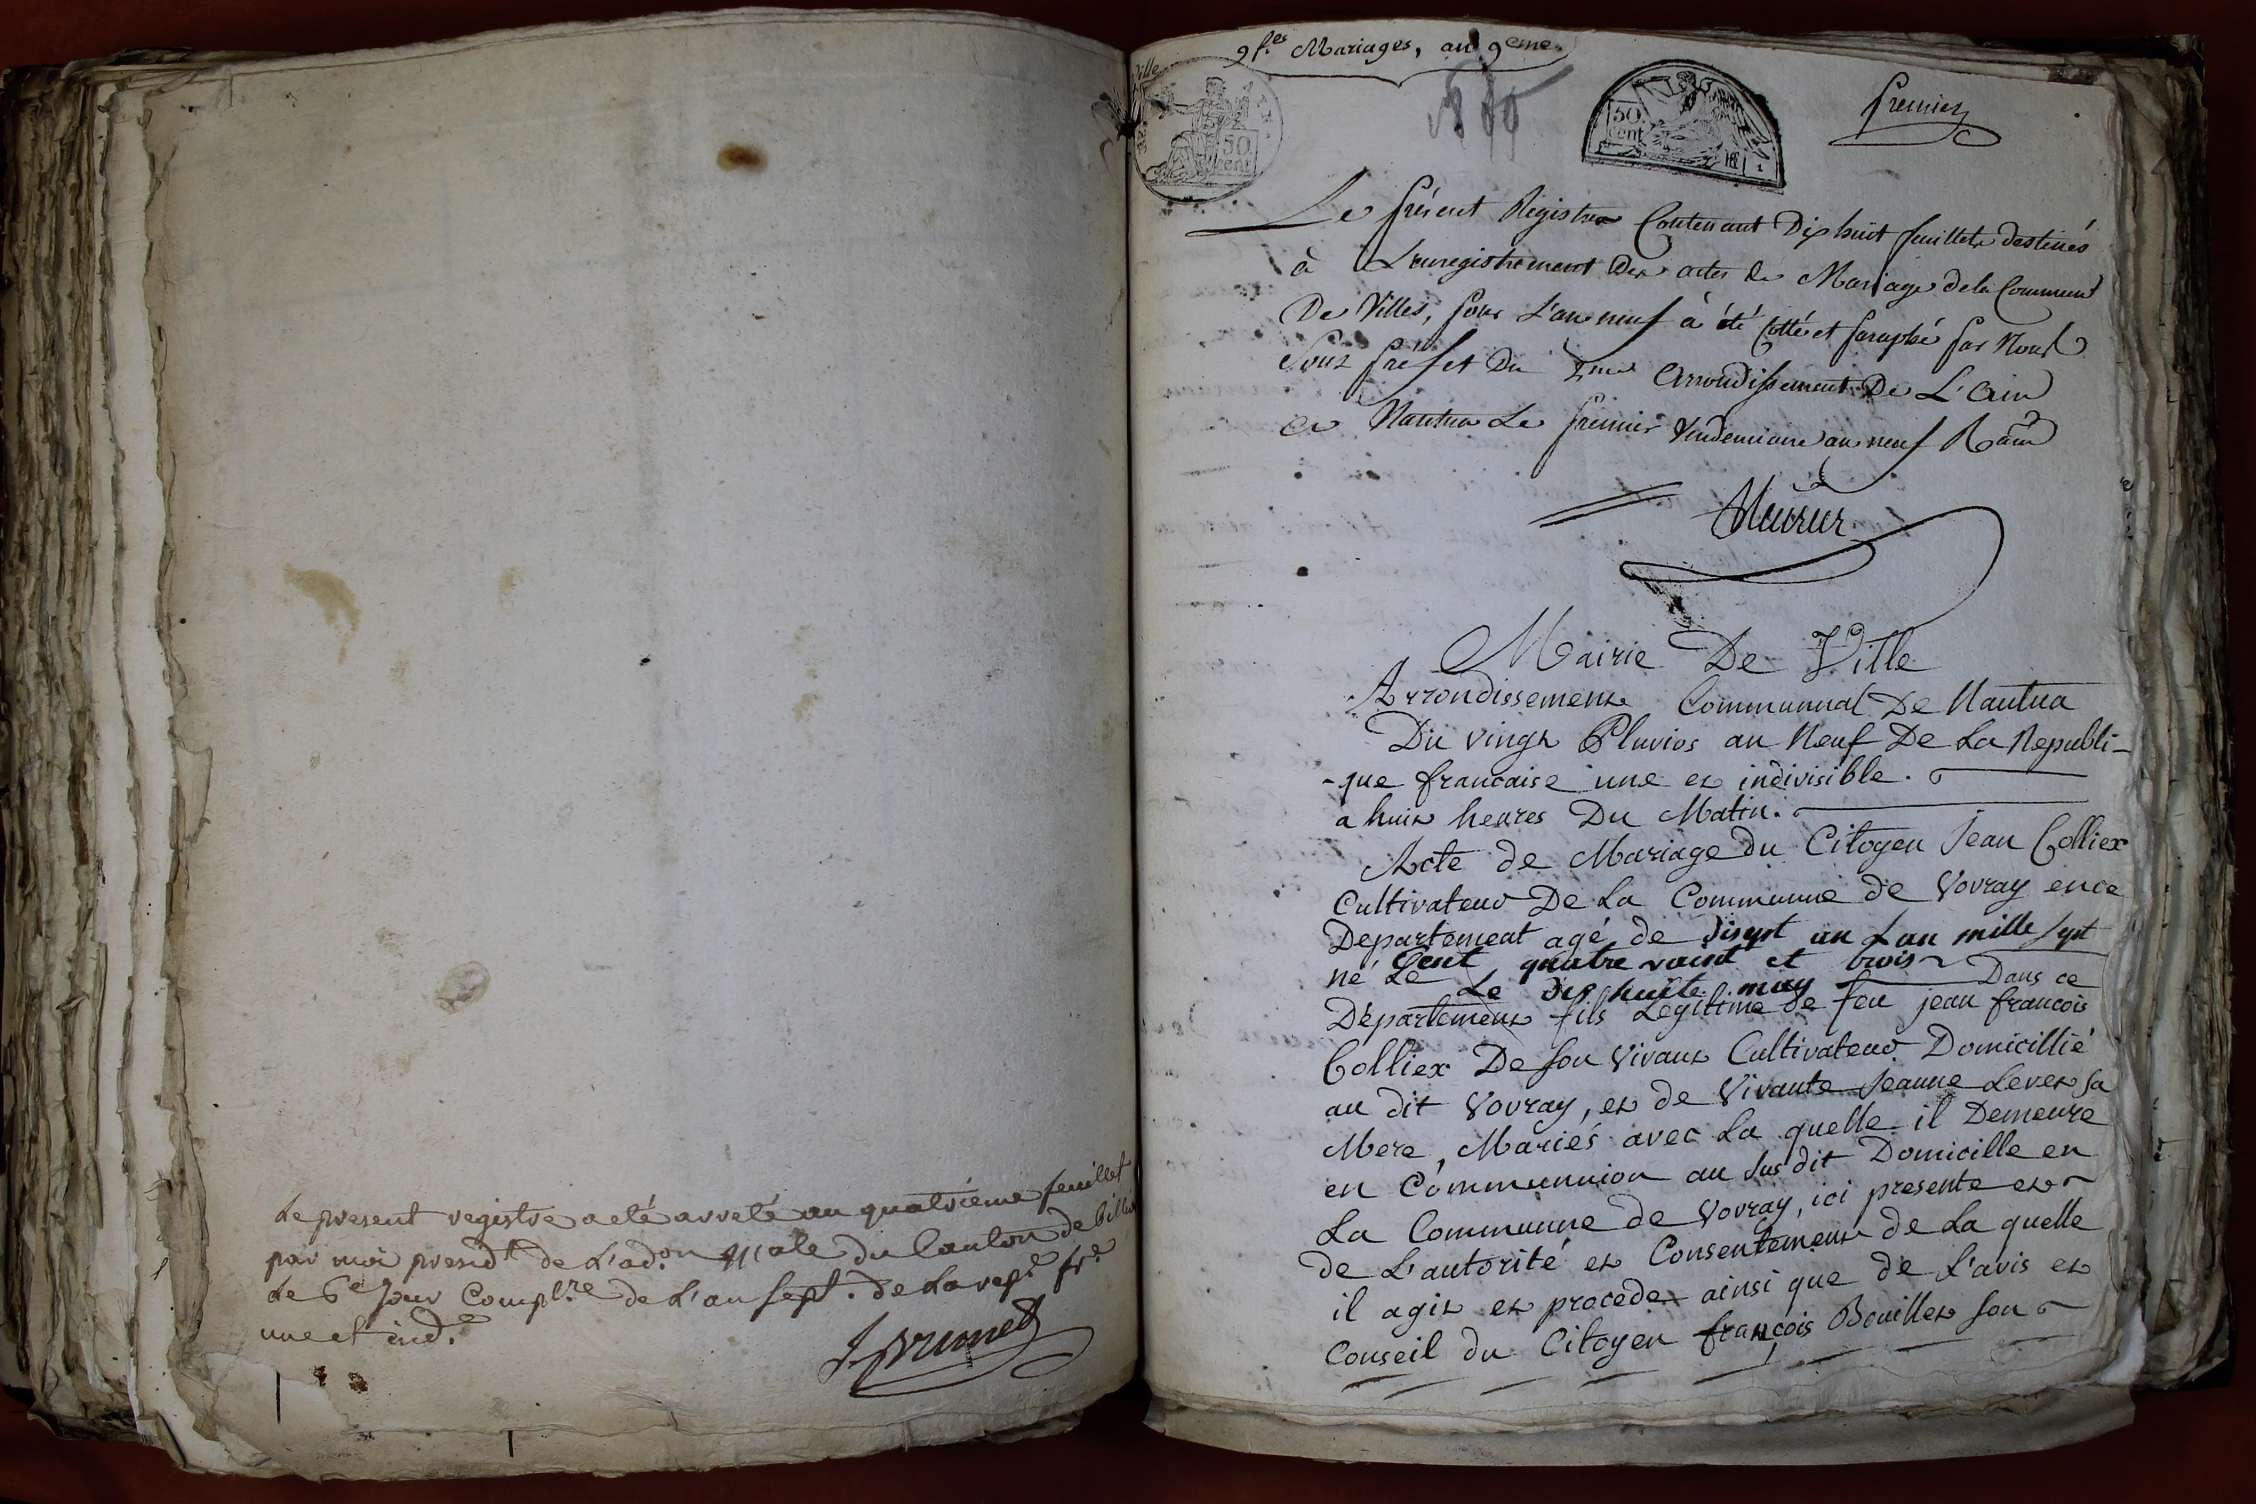 Le present registre a eté arreté au quatrieme feuillet
par moi presidt de L'ad.on Male du Canton de Billia
Le 6e Jour Complre de L'an sept. de La rep.e fre
une et ind.e
J. Brunet
ville
9 f.es Mariages, an 9eme.
50 cent
50 cent
Premier
Le présent Régistre Contenant Dix huit feuillets destinés
à L'enregistrement Des actes de Mariage de la Commune
De Villes, pour L'an neuf à été Cotté et paraphé par Nous
Sous préfet Du Arrondissement De L'Ain
a Nantua Le premier Vendemiaire an neuf Rain
Mairie De Ville
Arrondissement Communnal De Nantua
Du vingt Pluvios an Neuf De La Republi-
-que francaise une et indivisible.
a huit heures Du Matin.
Acte de Mariage du Citoyen Jean Colliex
Cultivateur De La Communne de Vovray en ce
Departement agé de disept an Lan mille sept
Cent quatre vaint et trois
né Le Le dis huite may Dans ce
Département fils Legitime de feu jean francois
Colliex De son Vivant Cultivateur Domicillié
au dit Vovray, et de Vivante Jeanne Levet sa
Mere, Mariés avec La quelle il Demeure
en Communnion au susdit Domicille en
La Communne de Vovray, ici presente et
de L'autorité et Consentement de La quelle
il agit et procede ainsi que de L'avis et
Conseil du Citoyen françois Bouillet son